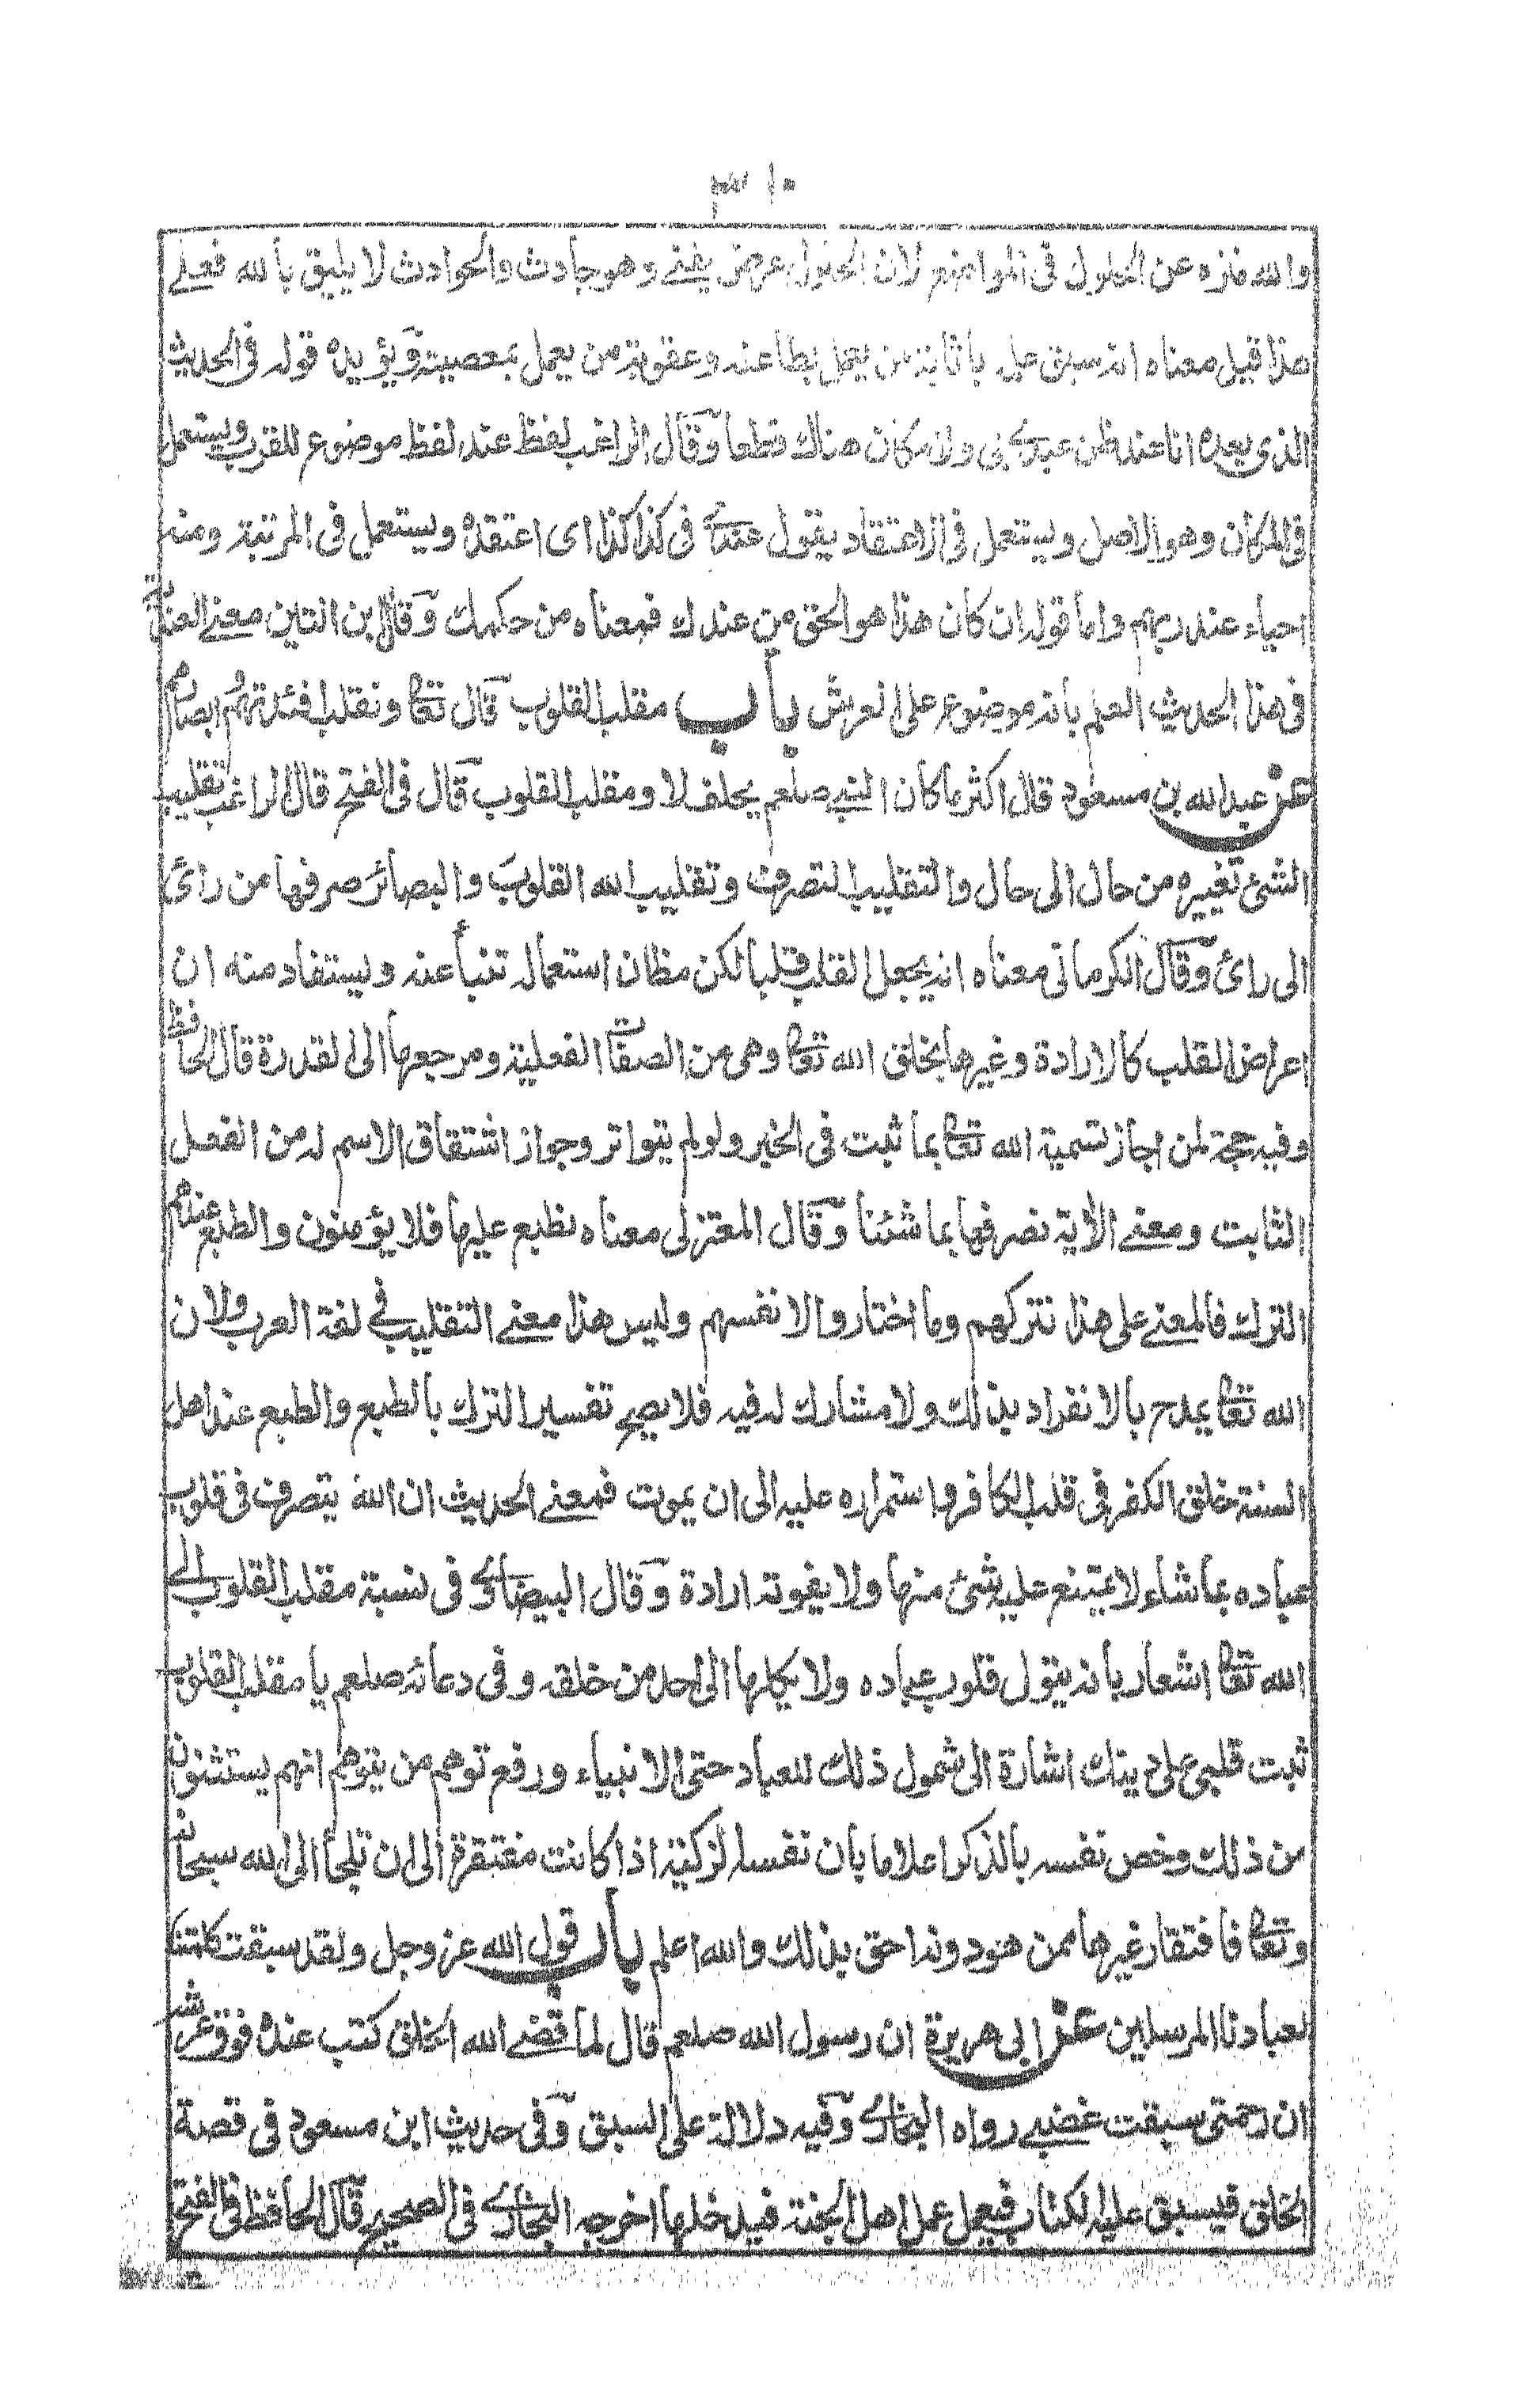 ٣١٠
والله منزه عن الحلول فى المواضع لان الحلول عرض يفنے وهو حادث والحوادث لا يليق بالله فعلے
هذا قيل معناه انه سبق علمه باثابة من يعمل بطاعته وعقوبة من يعمل بمعصيته ويؤيده قوله فى الحديث
الذى بعده انا عند ظن عبدے بى ولا مكان هناك قطعا وقال الراغب لفظ عند لفظ موضوع للقرب ويستعمل
فى المكان وهو الاصل ويستعمل فى الاعتقاد يقول عندے فى كذا كذا اى اعتقده ويستعمل فى المرتبة ومنه
احياء عند ربهم واما قوله ان كان هذا هو الحق من عندك فمعناه من حكمك وقال ابن التين معنے العندية
فى هذا الحديث العلم بانه موضوع على العرش باب مقلب القلوب قال تعا ونقلب افئدتهم وابصارهم
عن عبد الله بن مسعود قال اكثر ما كان النبے صلعم يحلف لا ومقلب القلوب قال فى الفتح قال الراغب تقليب
الشئ تغييره من حال الى حال والتقليب التصرف وتقليب الله القلوب والبصائر صرفها من رائ
الى رائ وقال الكرمانى معناه انه يجعل القلب قلبا لكن مظان استعماله تنبأ عنه ويستفاد منه ان
اعراض القلب كالارادة وغيرها بخلق الله تعا وهى من الصفات الفعلية ومرجعها الى القدرة قال الحافظ
وفيه حجة لمن اجاز تسمية الله تعا بما ثبت فى الخبر ولو لم يتواتر وجواز اشتقاق الاسم له من الفعل
الثابت ومعنے الآية نصرفها بما شئنا وقال المعتزلى معناه نطبع عليها فلا يؤمنون والطبع عندهم
الترك فالمعنے على هذا نتركهم وما اختاروا لانفسهم وليس هذا معنے التقليب فے لغة العرب ولان
الله تعا يمدح بالانفراد بذلك ولا مشارك له فيه فلا يصح تفسير الترك بالطبع والطبع عند اهل
السنة خلق الكفر فى قلب الكافر واستمراره عليه الى ان يموت فمعنے الحديث ان الله يتصرف فى قلوب
عباده بما شاء لا يمتنع عليه شئ منها ولا يفوته ارادة وقال البيضاوے فى نسبة مقلب القلوب الے
الله تعا اشعار بانه يتول قلوب عباده ولا يكلها الى احد من خلقه وفى دعائه صلعم يا مقلب القلوب
ثبت قلبى على دينك اشارة الى شمول ذلك للعباد حتى الانبياء ورفع توهم من يتوهم انهم يستثنون
من ذلك وخص نفسه بالذكر اعلاما بان نفسه الزكية اذا كانت مفتقرة الى ان تلجأ الى الله سبحانه
وتعا فافتقار غيرها ممن هو دونه احق بذلك والله اعلم باب قول الله عز وجل ولقد سبقت كلمتنا
لعبادنا المرسلين عن ابى هريرة ان رسول الله صلعم قال لما قضے الله الخلق كتب عنده فوق عرشه
ان رحمتى سبقت غضبے رواه البخارے وفيه دلالة على السبق وفى حديث ابن مسعود فى قصة
الخلق فيسبق عليه الكتاب فيعمل عمل اهل الجنة فيدخلها اخرجه البخارے فى الصحيح قال الحافظ فى الفتح